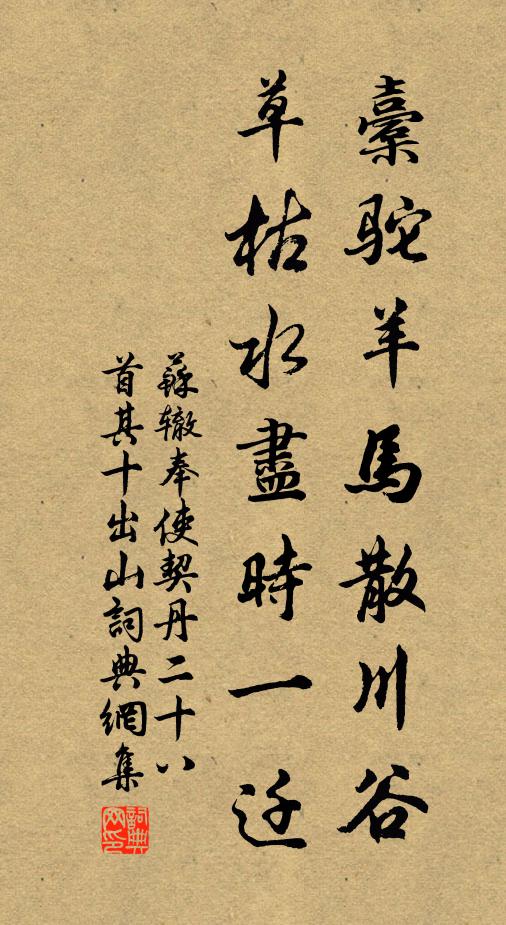 橐驼羊馬散川谷
草枯水盡時一迁
蘇辙奉使契丹二十八
首其十出山詞典網集
詞典网印